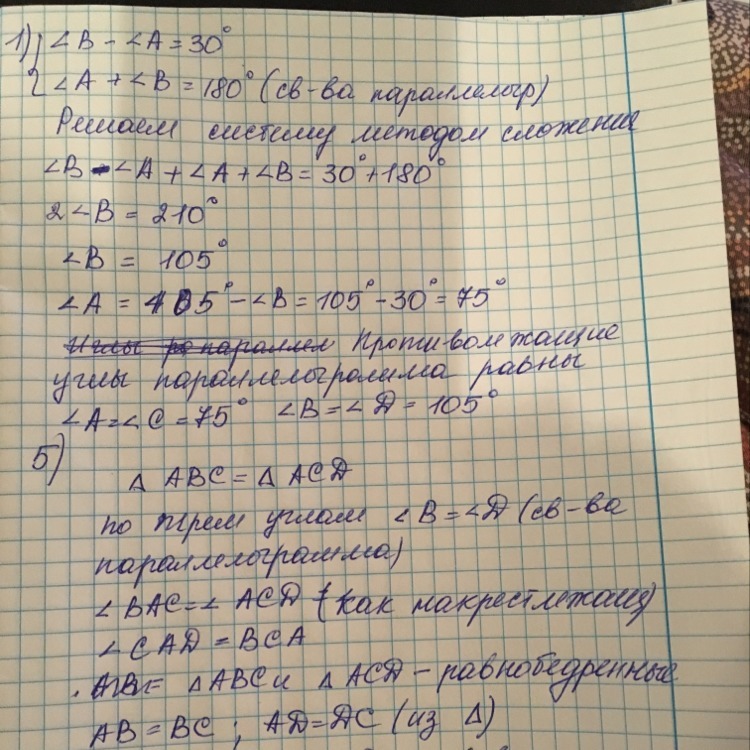 1) { ∠B - ∠A = 30°
∠A + ∠B = 180° (св-ва параллелогр)
Решаем систему методом сложения
∠B - ∠A + ∠A + ∠B = 30° + 180°
2∠B = 210°
∠B = 105°
∠A = 105° - ∠B = 105° - 30° = 75°
Углы параллел Противолежащие
углы параллелограмма равны
∠A = ∠C = 75° ∠B = ∠D = 105°
5)
△ ABC = △ ACD
по трем углам ∠B = ∠D (св-ва
параллелограмма)
∠BAC = ∠ACD (как накрестлежащ)
∠CAD = BCA
△ABC и △ ACD - равнобедренные
AB = BC ; AD = DC (из △)